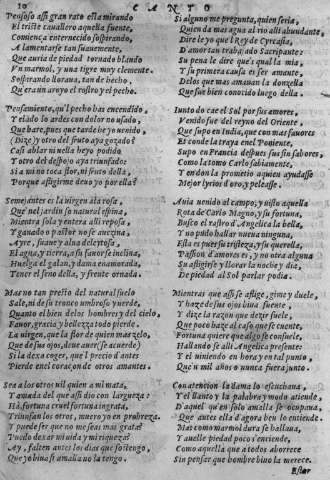 10 CANTO
Pensoso assi gran rato esta mirando
El triste cauallero aquella fuente,
Comiença enternecido sospirando,
A lamentarse tan suauemente,
Que auria de piedad tornado blando
Vn marmol, y una tigre muy clemente.
Sospirando lloraua, tan de hecho,
Que era un arroyo el rostro y el pecho.
Pensamiento, qu'l pecho has encendido,
Y elado lo ardes con dolor no usado,
Que hare, pues que tarde he yo uenido,
(Dize) y otro del fruto aya gozado?
Casi ablar ni uella he yo podido
Y otro del despojo aya triunfado:
Si a mi no toca flor, ni fruto della,
Porque affligirme deuo yo por ella?
Semejante es la uirgen ala rosa,
Que nel jardin so natural espina,
Mientra sola y entera alli reposa,
Y ganado o pastor no se auezina,
Ayre, suaue y alua deleytosa,
El agua, y tierra, a su fauor se inclina,
Huelga el galan, y dama enamorada,
Tener el seno della, y frente ornada.
Mas no tan presto del natural suelo
Sale, ni de su tronco umbroso y uerde,
Quanto el bien delos hombres y del cielo,
Fauor, gracia y belleza todo pierde.
La uirgen, que la flor de quien mas zelo,
Que de sus ojos, deue auer (se acuerde)
Si la dexa coger, que l precio d'antes
Pierde en el coraçon de otros amantes.
Sea a los otros uil quien a mi mata,
Y amada del que assi dio con largueza:
Ha fortuna cruel fortuna ingrata,
Triunfan los otros, muero yo en probreza.
Y puede ser que no me seas mas grata?
Puedo dexar mi uida y mi riqueza?
Ay, falten antes los dias que sostengo,
Que yo biua si amalla no la tengo.
Si alguno me pregunta, quien seria,
Quien da mas agua al rio alli abundante,
Dire le yo que'l Rey de Cyrcasia,
D'amor tan trabajado Sacripante:
Su pena le dire que's qual la mia,
Y su primera causa es ser amante.
Delos que mas amauan la donzella
Que fue bien conocido luego della.
Iunto do cae el Sol por sus amores,
Venido fue del reyno del Oriente
Que supo en India, que con mas fauores
Es conde la traya en el Poniente.
Supo en Francia despues sus sin sabores,
Como la tomo Carlo sabiamente,
Y en don la prometio aquien ayudasse
Mejor lyrios d'oro, y peleasse.
Auia uenido al campo, y uisto aquella
Rota de Carlo Magno, y su fortuna,
Busco el rastro d'Angelica la bella,
Y no pudo hallar nueua ninguna,
Ella es pues su tristeza, y su querella,
Passion d'amores es, y no otra alguna
Su afligirse y llorar la noche y dia,
De piedad al Sol parlar podia.
Mientras que assi se aflige, gime y duele,
Y haze de sus ojos biua fuente,
Y dize la razon que dezir suele,
Que poco haze al caso que se cuente,
Fortuna quiere que algo se consuele,
Hallando se alli Angelica presente
Y el uiniendo en hora y en tal punto,
Qu'n mil años o nunca fuera junto.
Con atencion la dama lo escuchaua,
Y el llanto y la palabra y modo atiende,
D'aquel qu'en solo amalla se ocupaua,
Que antes ella d'agora ben lo entiende.
Mas como marmol dura se hallaua,
Y auelle piedad poco s'enciende,
Como aquella que a todos aborrece
Sin pensar que hombre biuo la merece.
Estar